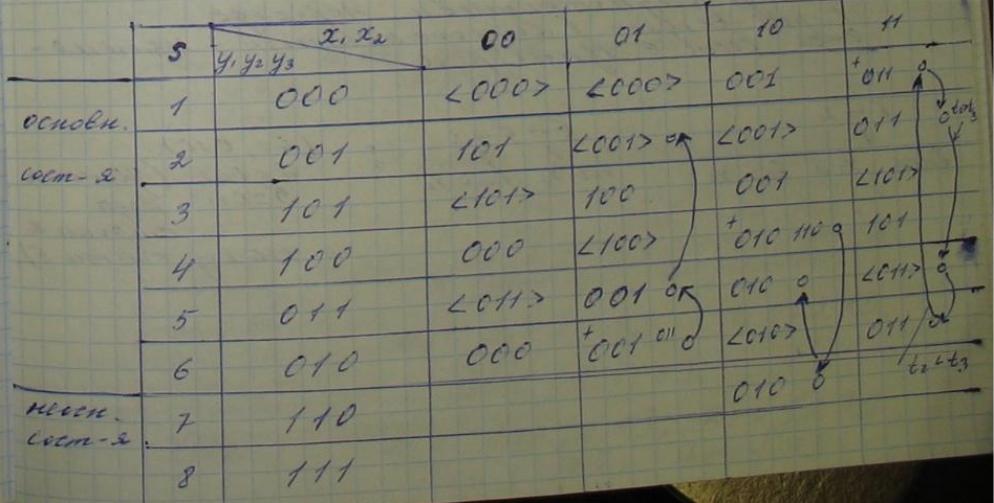 S x₁ x₂ 00 01 10 11
y₁ y₂ y₃
основн.
1 000 <000> <000> 001 +011
сост-я
2 001 101 <001> <001> 011
3 101 <101> 100 001 <101>
4 100 000 <100> +010 110 101
5 011 <011> 001 010 <011>
6 010 000 +001 011 <010> 011
t₂ t₃
неосн. 7 110 010
сост-я
8 111